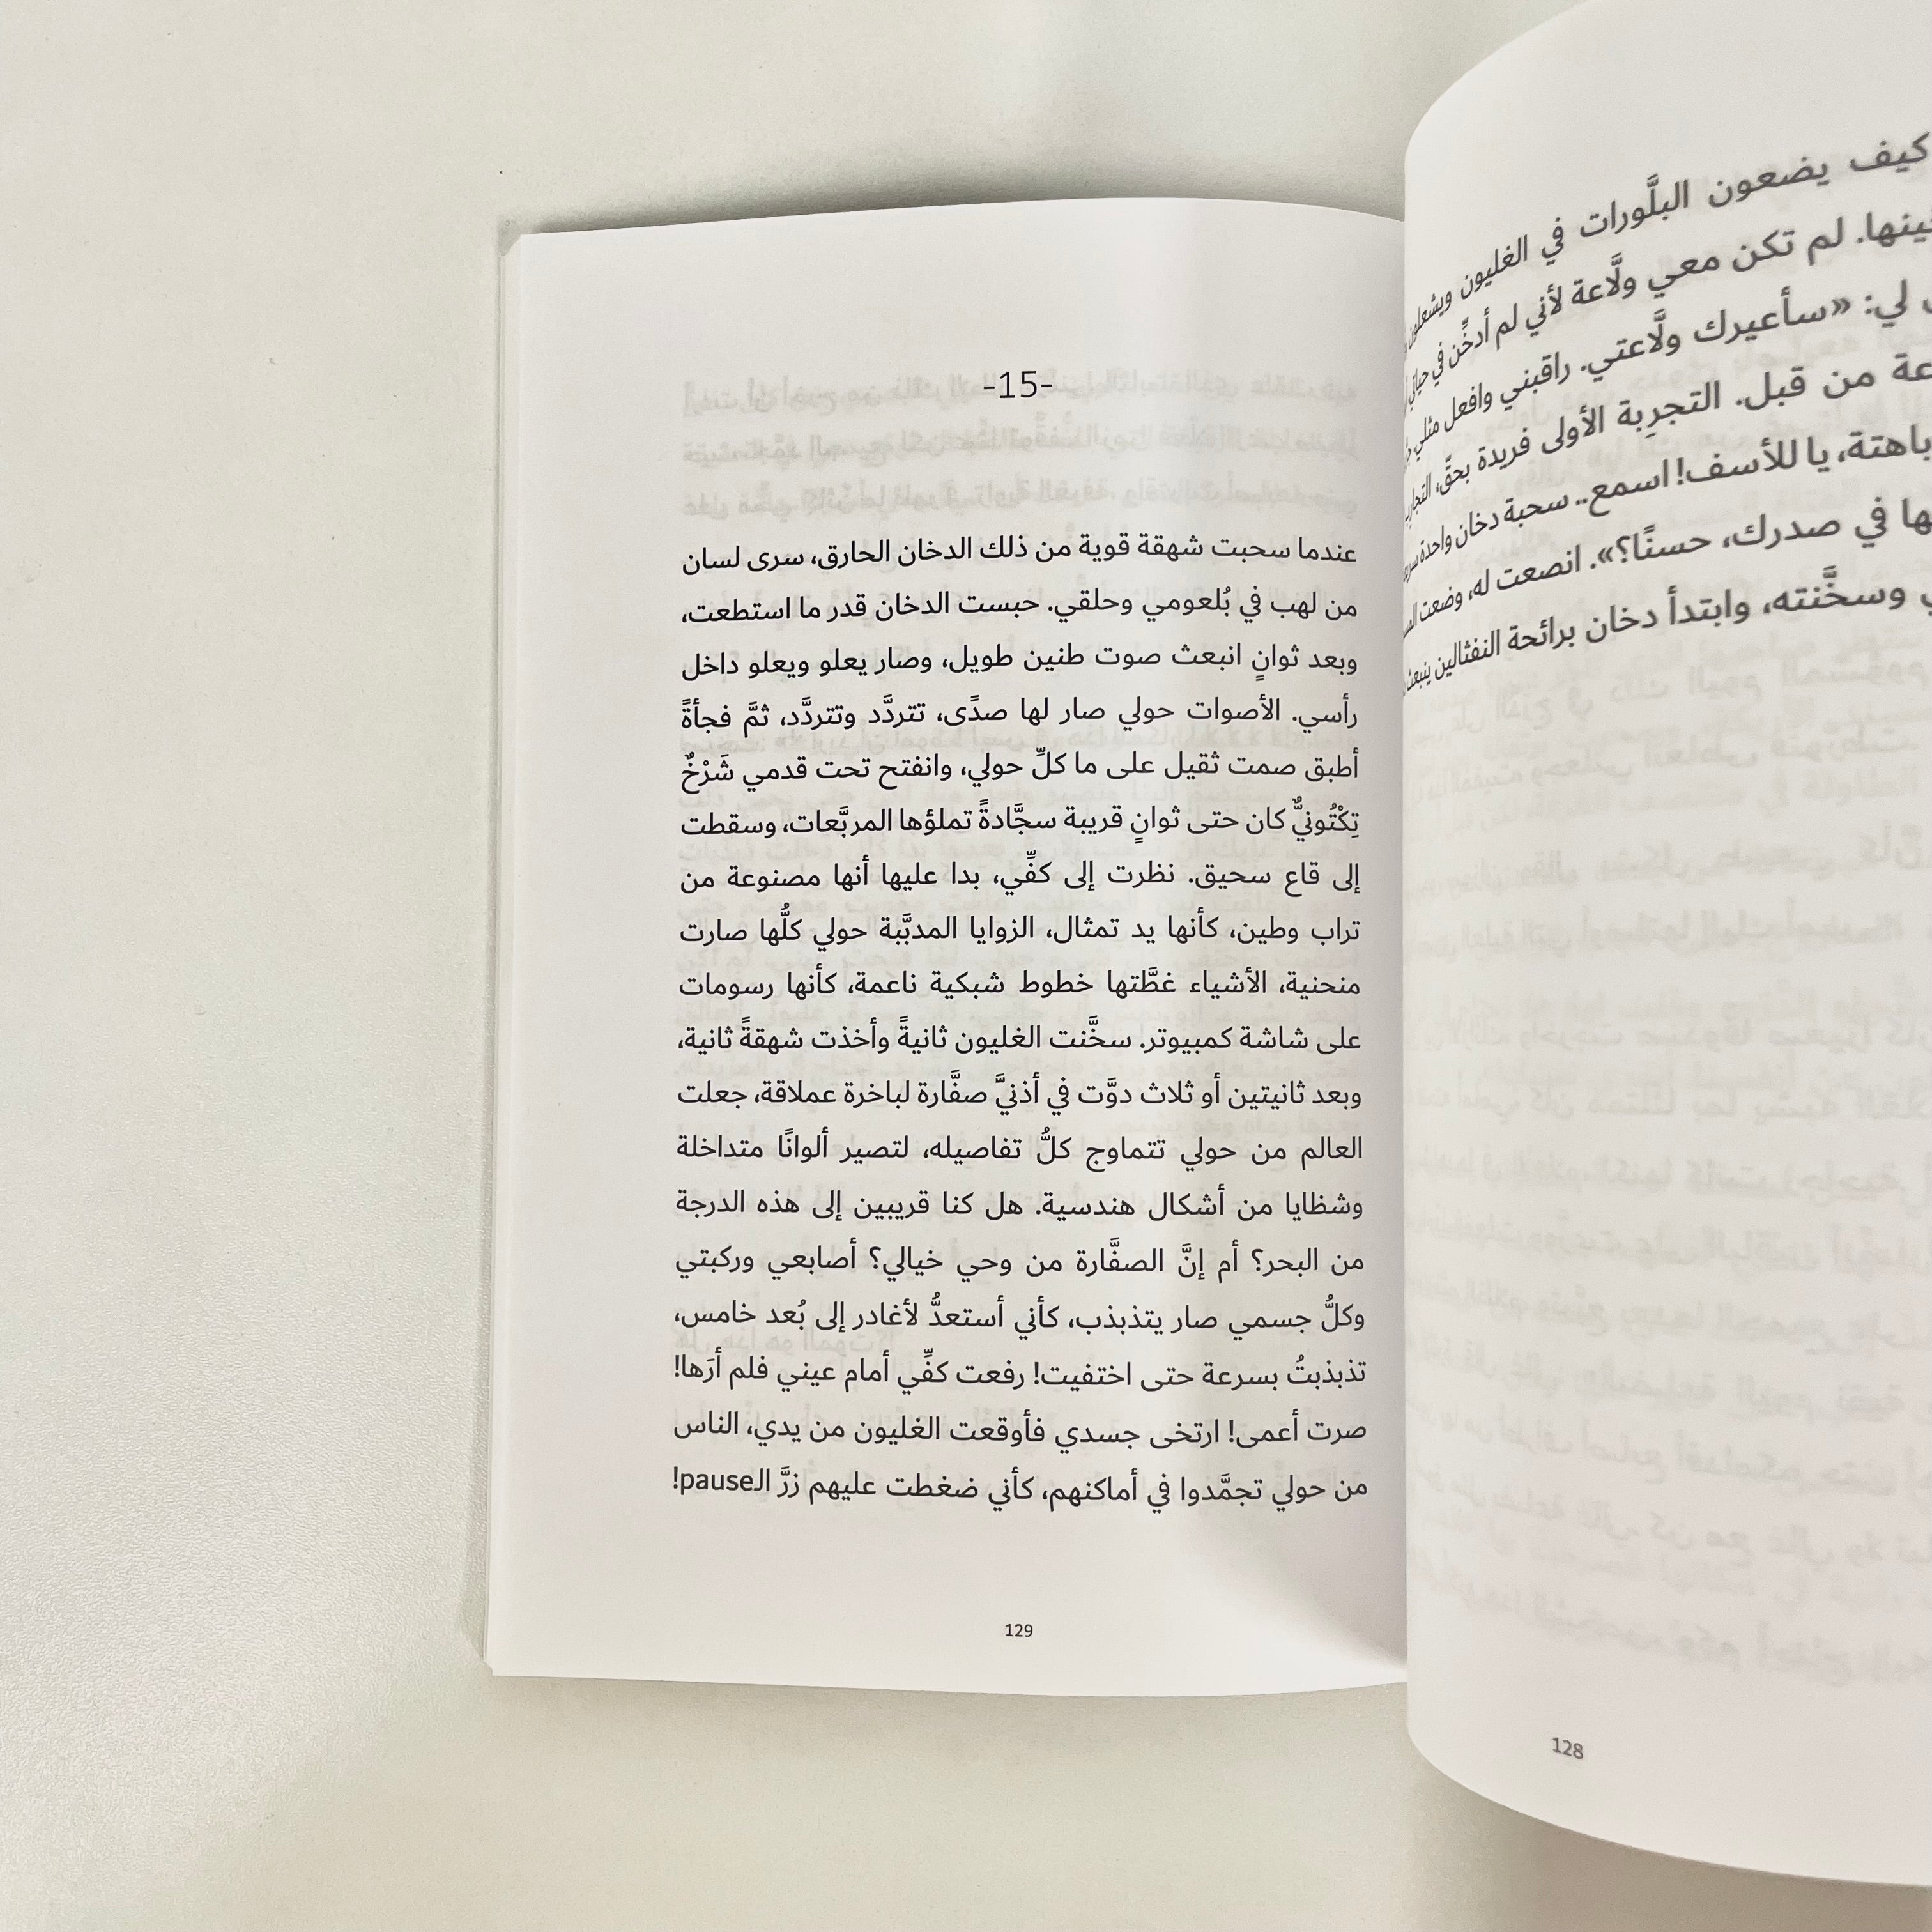 كيف يضعون البلَّورات في الغليون ويشعلون
لم تكن معي ولَّاعة لأني لم أدخِّن في حياتي
لي: «سأعيرك ولَّاعتي. راقبني وافعل مثلي
من قبل. التجرِبة الأولى فريدة بحقّ، التجارِب
باهتة، يا للأسف! اسمع.. سحبة دخان واحدة
في صدرك، حسنًا؟». انصعت له، وضعت
وسخَّنته، وابتدأ دخان برائحة النفثالين ينبعث
128
-15-
عندما سحبت شهقة قوية من ذلك الدخان الحارق، سرى لسان
من لهب في بُلعومي وحلقي. حبست الدخان قدر ما استطعت،
وبعد ثوانٍ انبعث صوت طنين طويل، وصار يعلو ويعلو داخل
رأسي. الأصوات حولي صار لها صدًى، تتردَّد وتتردَّد، ثمَّ فجأةً
أطبق صمت ثقيل على ما كلِّ حولي، وانفتح تحت قدمي شَرْخٌ
تِكْتُونيٌّ كان حتى ثوانٍ قريبة سجَّادةً تملؤها المربَّعات، وسقطت
إلى قاع سحيق. نظرت إلى كفِّي، بدا عليها أنها مصنوعة من
تراب وطين، كأنها يد تمثال، الزوايا المدبَّبة حولي كلُّها صارت
منحنية، الأشياء غطَّتها خطوط شبكية ناعمة، كأنها رسومات
على شاشة كمبيوتر. سخَّنت الغليون ثانيةً وأخذت شهقةً ثانية،
وبعد ثانيتين أو ثلاث دوَّت في أذنيَّ صفَّارة لباخرة عملاقة، جعلت
العالم من حولي تتماوج كلُّ تفاصيله، لتصير ألوانًا متداخلة
وشظايا من أشكال هندسية. هل كنا قريبين إلى هذه الدرجة
من البحر؟ أم إنَّ الصفَّارة من وحي خيالي؟ أصابعي وركبتي
وكلُّ جسمي صار يتذبذب، كأني أستعدُّ لأغادر إلى بُعد خامس،
تذبذبتُ بسرعة حتى اختفيت! رفعت كفِّي أمام عيني فلم أرَها!
صرت أعمى! ارتخى جسدي فأوقعت الغليون من يدي، الناس
من حولي تجمَّدوا في أماكنهم، كأني ضغطت عليهم زرَّ الـpause!
129